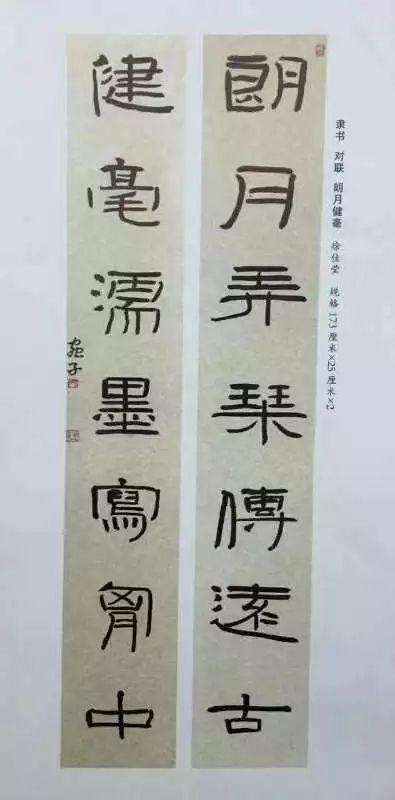 隶书 对联 朗月健毫 徐佳莹 规格 173厘米×25厘米×2
朗月弄琹傳遠古
健毫濡墨寫胷中